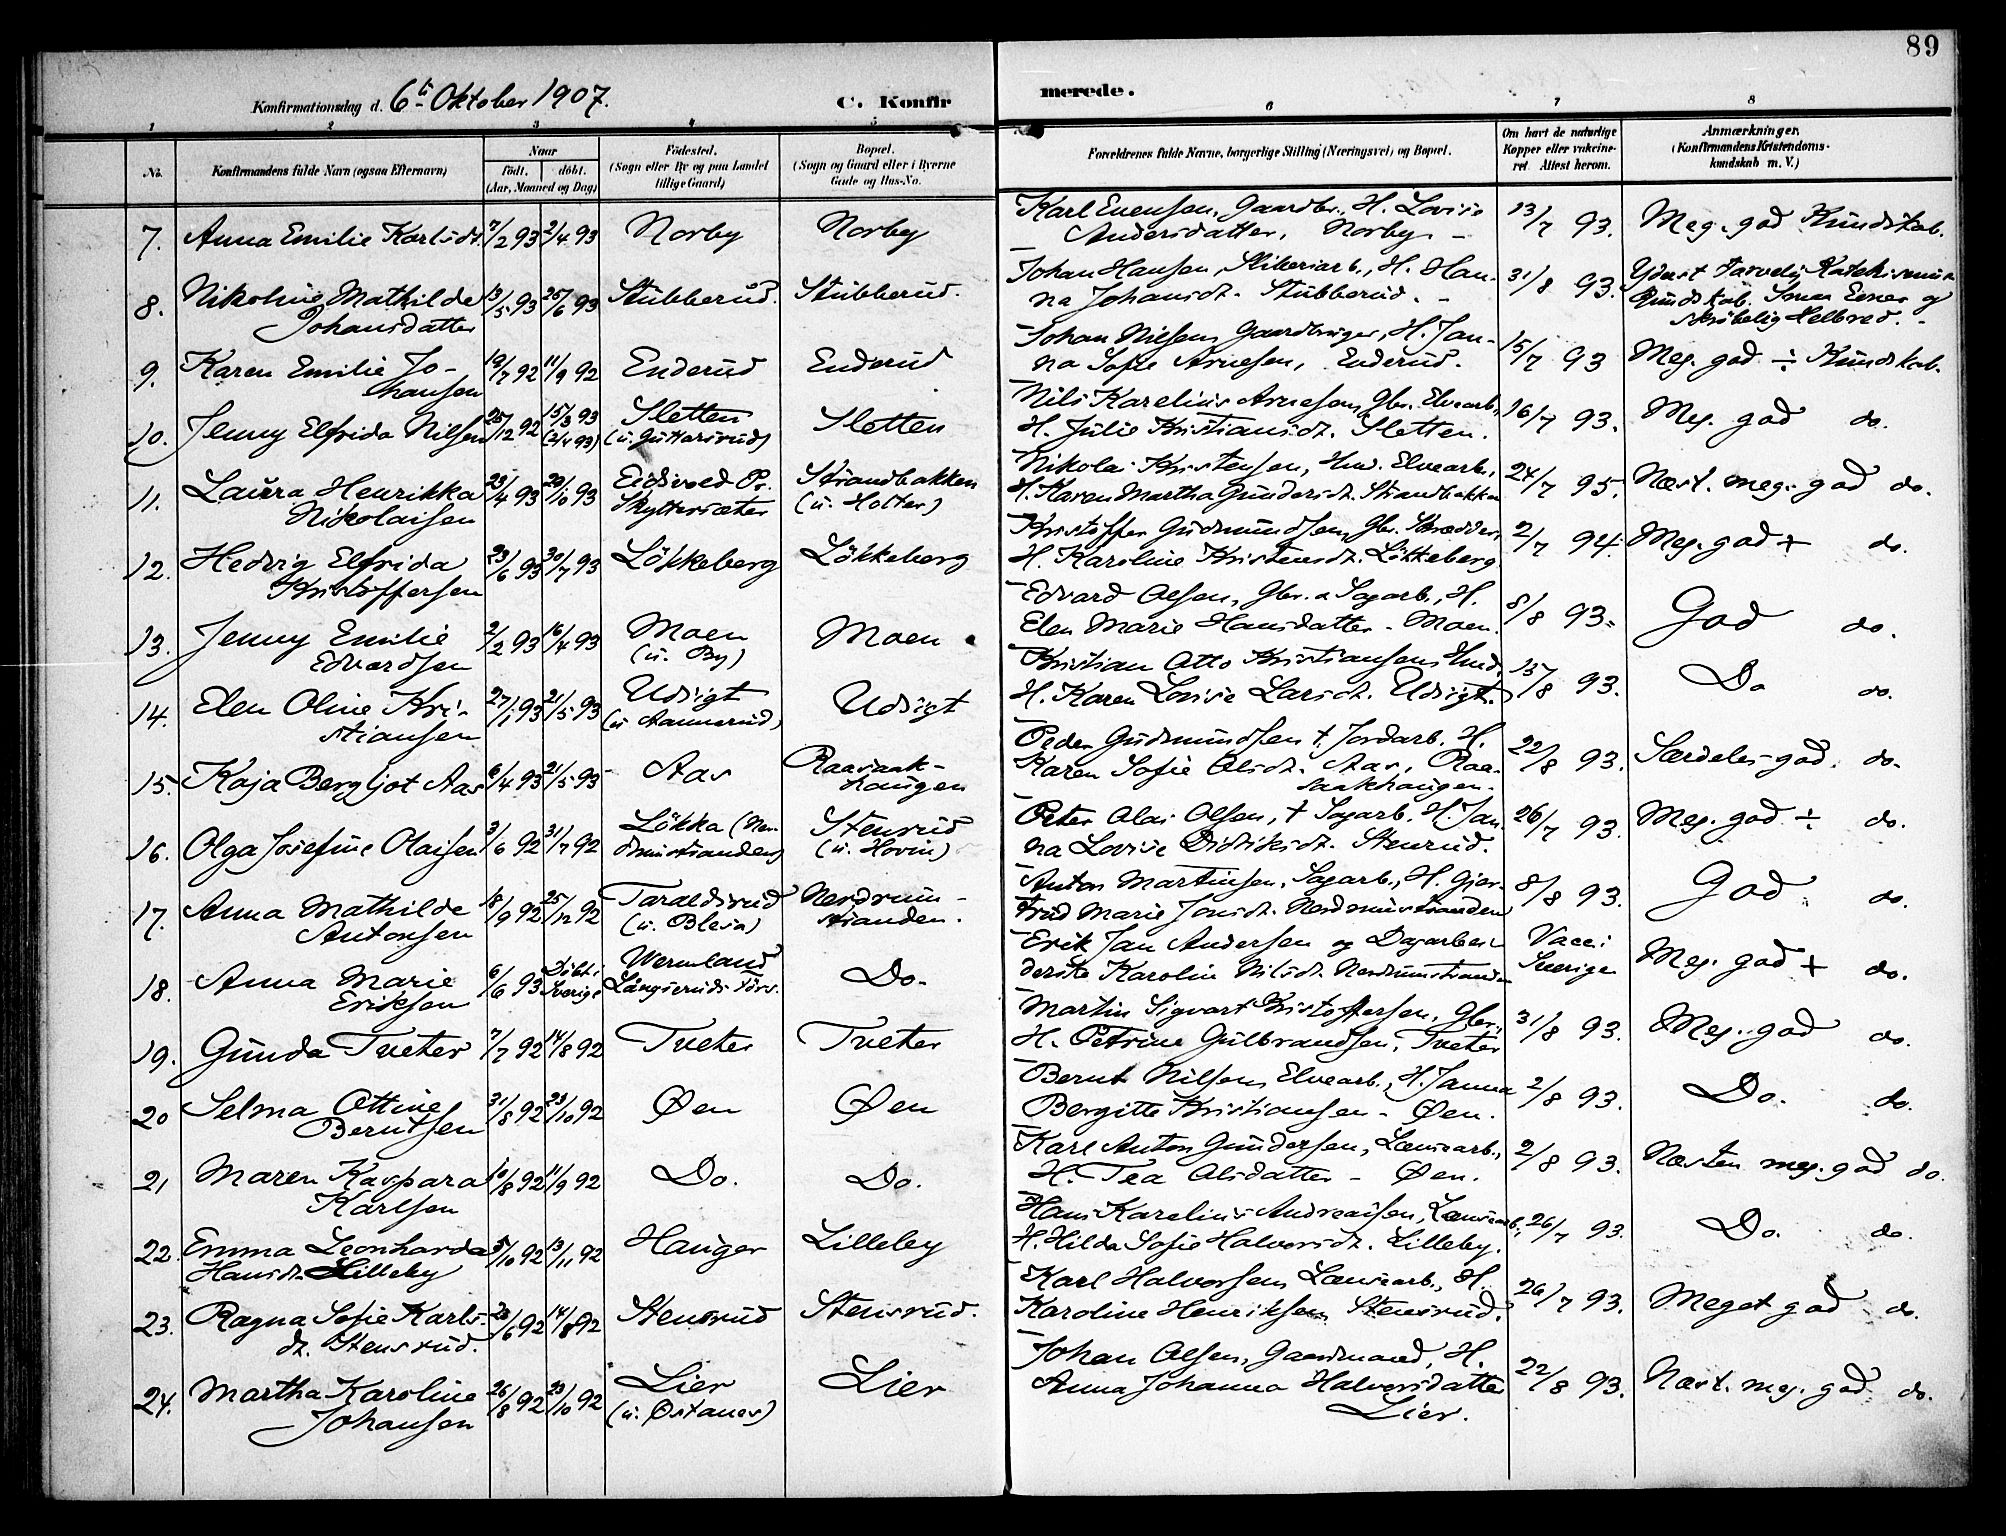 89
Konfirmationsdag d. 6te Oktober 1907. C. Konfirmerede.
1 2 3 4 5 6 7 8
No. Konfirmandens fulde Navn (ogsaa Efternavn) Naar født. døbt. (Aar, Maaned og Dag) Fødested. (Sogn eller By og paa Landet tillige Gaard) Bopæl. (Sogn og Gaard eller i Byerne Gade og Hus-No. Forældrenes fulde Navne, borgerlige Stilling (Næringsvei) og Bopæl. Om havt de naturlige Kopper eller vaccineret Attest herom. Anmærkninger. (Konfirmandens Kristendomskundskab m. V.)
7. Anna Emilie Karlsdt. 7/2 93 2/4 93 Norby Norby Karl Evensen, Gaardbr., H. Lovise
Andersdatter, Norby. 13/7 93. Meg. god Kundskab.
8. Nikoline Mathilde
Johansdatter 13/5 93 25/6 93 Stubberud. Stubberud. Johan Hansen, H. Han-
na Johansdt. Stubberud. 31/8 93. Yderst tarvelig
Kundskab. Smaa Evner og
skrøbelig Helbred.
9. Karen Emilie Jo-
hansen 19/7 92 11/9 92 Enderud Enderud Johan Nilsen, Gaardbruger, H. Jan-
na Sofie Arnesen, Enderud. 15/7 93 Meg. god ÷ Kundskab.
10. Jenny Elfrida Nilsen 25/12 92 15/3 93 (2/4 93) Sletten
(u. Guttersrud) Sletten Nils Karelius Arnesen, Gbr. Elvearb.,
H. Julie Kristiansdt. Sletten. 16/7 93. Meg. god do.
11. Laura Henrikka
Nikolaisen 23/4 93 29/10 93 Eidsvold Pr.
Skyttersæter Strandbakken
(u. Holter) Nikolai Kristensen, Hmd. Elvearb.,
H. Karen Martha Gundersdt. Strandbakken 24/7 95. Næst. meg. god do.
12. Hedvig Elfrida
Kristoffersen 23/6 93 30/7 93 Løkkeberg Løkkeberg Kristoffer Gudmundsen, Gbr. Skrædder,
H. Karoline Kristensdt. Løkkeberg. 2/7 94 Meg. god + do.
13. Jenny Emilie
Edvardsen 2/2 93 16/4 93 Moen
(u. By) Moen Edvard Olsen, Gbr. & Sagarb., H.
Elen Marie Hansdatter - Moen. 8/8 93. God do.
14. Elen Oline Kri-
stiansen 27/1 93 21/5 93 Udsigt
(u. Kannerud) Udsigt Kristian Otto Kristiansen, Hmd.
H. Karen Lovise Larsdt. Udsigt. 15/8 93. Do do.
15. Kaja Bergljot Aas 6/4 93 21/5 93 Aas Raasaak-
haugen Peder Gudmundsen †, Jordarb. H.
Karen Sofie Olsdt. Aas, Raa-
saakhaugen. 22/8 93. Særdeles god. do.
16. Olga Josefine Olaisen 3/6 92 31/7 92 Løkka (Ner-
drumstranden) Stenrud
(u. Hovin) Peter Olai Olsen, † Sagarb. H. Jan-
na Lovise Didriksdt. Stenrud. 26/7 93. Meg. god ÷ do.
17. Anna Mathilde
Antonsen 18/9 92 25/12 92 Taraldsrud
(u. Blesa) Nerdrum-
stranden. Anton Martinsen, Sagarb., H. Gjer-
trud Marie Jonsdt. Nerdrumstranden 8/8 93. God do.
18. Anna Marie
Eriksen 6/6 93 Døbt i
Sverige Wermland
Långseruds förs. Do. Erik Jan Andersen og Dagarbei-
derske Karolin Nilsdt. Nerdrumstranden Vacc. i
Sverige Meg. god + do.
19. Gunda Tveter 7/7 92 14/8 92 Tveter Tveter Martin Sigvart Kristoffersen, Gbr.,
H. Petrine Gulbrandsen, Tveter 31/8 93. Meg. god do.
20 Selma Ottine
Berntsen 31/8 92 23/10 92 Øen Øen Bernt Nilsen, Elvearb., H. Janna
Bergitte Kristiansen - Øen. 2/8 93. Do. do.
21 Maren Kaspara
Karlsen 10/8 92 11/9 92 Do. Do. Karl Anton Gundersen, Lænsearb.,
H. Tea Olsdatter - Øen. 2/8 93. Næsten meg. god do.
22. Emma Leonharda
Hansdt. Lilleby 5/10 92 13/11 92 Hauger Lilleby Hans Karelius Andreassen, Lænsearb.,
H. Hilda Sofie Halvorsdt. Lilleby. 26/7 93. Do. do.
23. Ragna Sofie Karls-
dt. Stensrud. 23/6 92 14/8 92 Stensrud Stensrud. Karl Halvorsen, Lænsearb., H.
Karoline Henriksen, Stensrud. 26/7 93. Meget god do.
24. Martha Karoline
Johansen 26/8 92 23/10 92 Lier
(u. Østanes) Lier Johan Olsen, Gaardmand, H.
Anna Johanna Halvorsdatter
Lier. 22/8 93. Næst. meg. god do.